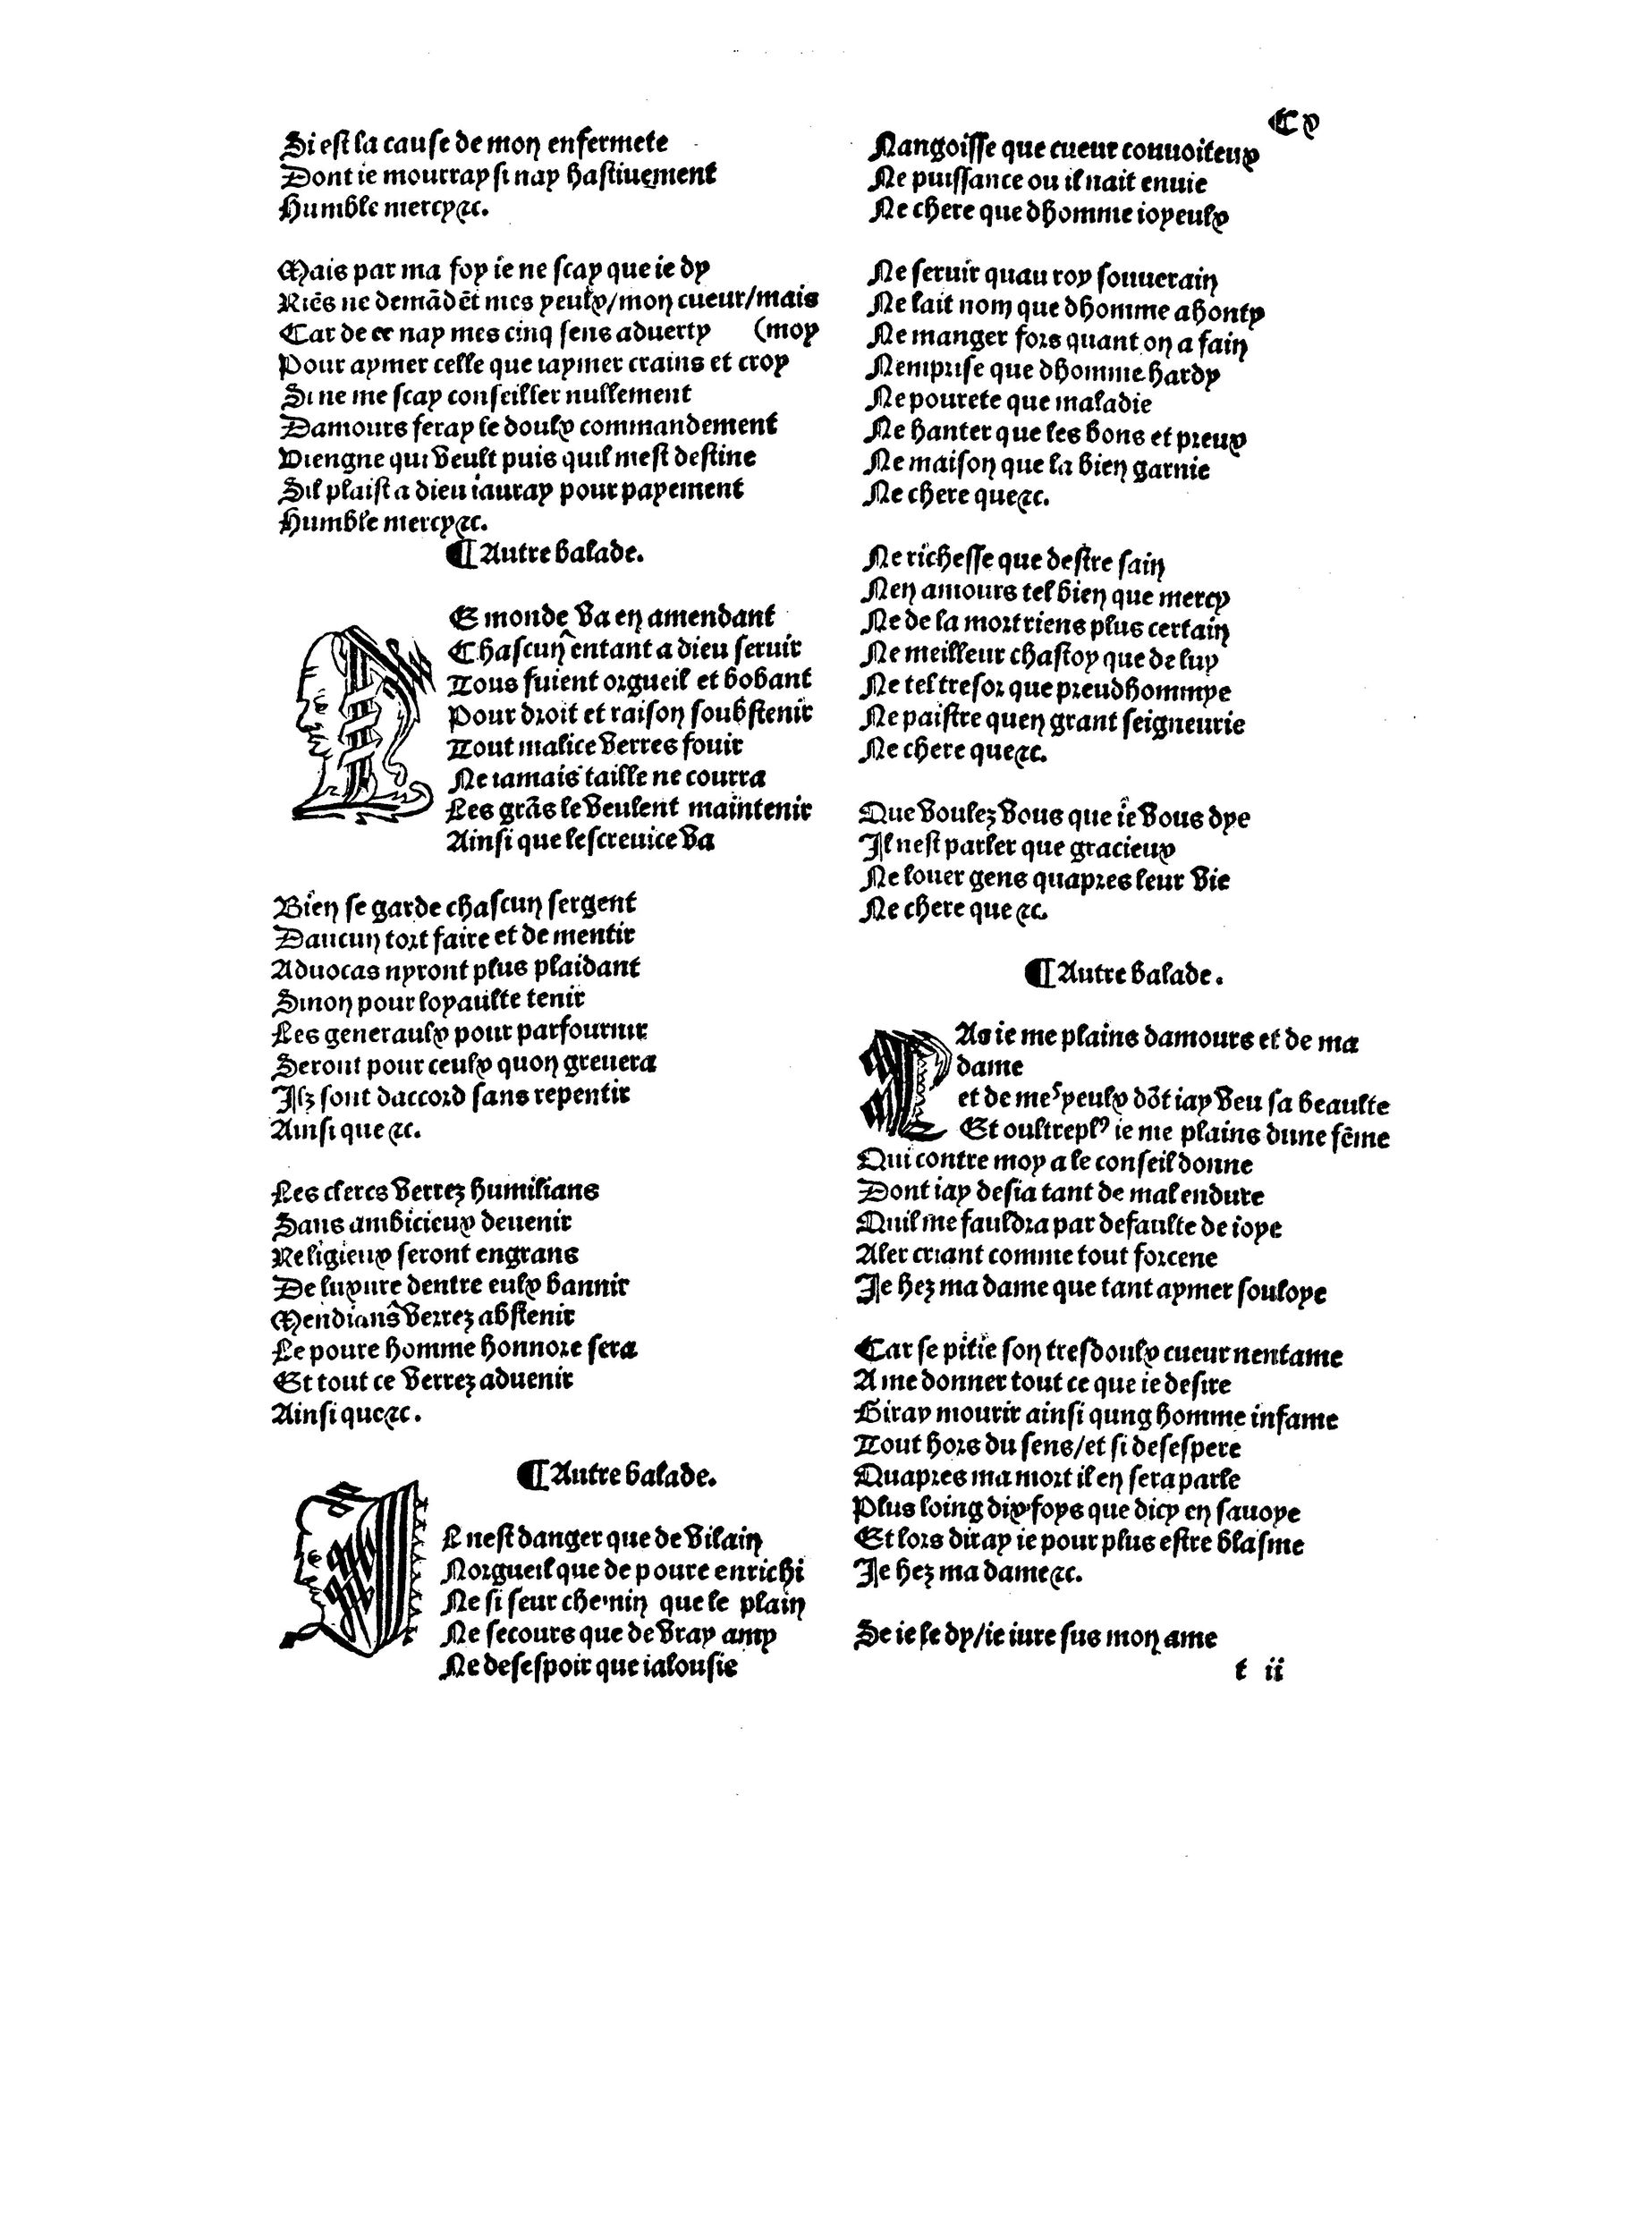 Cx
Si est la cause de mon enfermete
Dont ie mourray si nay hastiuement
Humble mercy⁊c.
Mais par ma foy ie ne scay que ie dy
Riēs ne demādēt mes yeulx/mon cueur/mais
Car de ce nay mes cinq sens aduerty (moy
Pour aymer celle que iaymer crains et croy
Si ne me scay conseiller nullement
Damours feray le doulx commandement
Viengne qui veult puis quil mest destine
Sil plaist a dieu iauray pour payement
Humble mercy⁊c.
¶ Autre balade.
LE monde va en amendant
Chascun entant a dieu seruir
Tous fuient orgueil et bobant
Pour droit et raison soubstenir
Tout malice verres fouir
Ne iamais taille ne courra
Les grās le veulent maintenir
Ainsi que lescreuice va
Bien se garde chascun sergent
Daucun tort faire et de mentir
Aduocas nyront plus plaidant
Sinon pour loyaulte tenir
Les generaulx pour parfournir
Seront pour ceulx quon greuera
Ilz sont daccord sans repentir
Ainsi que ⁊c.
Les clercs verrez humilians
Sans ambicieux deuenir
Religieux seront engrans
De luxure dentre eulx bannir
Mendians verrez abstenir
Le poure homme honnore sera
Et tout ce verrez aduenir
Ainsi que⁊c.
¶ Autre balade.
IL nest danger que de vilain
Norgueil que de poure enrichi
Ne si seur chemin que le plain
Ne secours que de vray amy
Ne desespoir que ialousie
Nangoisse que cueur conuoiteux
Ne puissance ou il nait enuie
Ne chere que dhomme ioyeulx
Ne seruir quau roy souuerain
Ne lait nom que dhomme ahonty
Ne manger fors quant on a fain
Nemprise que dhomme hardy
Ne pourete que maladie
Ne hanter que les bons et preux
Ne maison que la bien garnie
Ne chere que⁊c.
Ne richesse que destre sain
Nen amours tel bien que mercy
Ne de la mort riens plus certain
Ne meilleur chastoy que de luy
Ne tel tresor que preudhommye
Ne paistre quen grant seigneurie
Ne chere que⁊c.
Que voulez vous que ie vous dye
Il nest parler que gracieux
Ne louer gens quapres leur vie
Ne chere que ⁊c.
¶ Autre balade.
LAs ie me plains damours et de ma
dame
et de mes yeulx dōt iay veu sa beaulte
Et oultreplꝰ ie me plains dune fēme
Qui contre moy a le conseil donne
Dont iay desia tant de mal endure
Quil me fauldra par defaulte de ioye
Aler criant comme tout forcene
Je hez ma dame que tant aymer souloye
Car se pitie son tresdoulx cueur nentame
A me donner tout ce que ie desire
Giray mourir ainsi qung homme infame
Tout hors du sens/et si desespere
Quapres ma mort il en sera parle
Plus loing dix foys que dicy en sauoye
Et lors diray ie pour plus estre blasme
Je hez ma dame⁊c.
Se ie le dy/ie iure sus mon ame
t ii